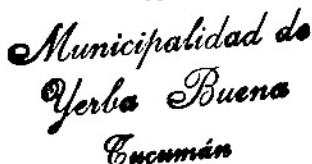 Municipalidad de
Yerba Buena
Tucumán